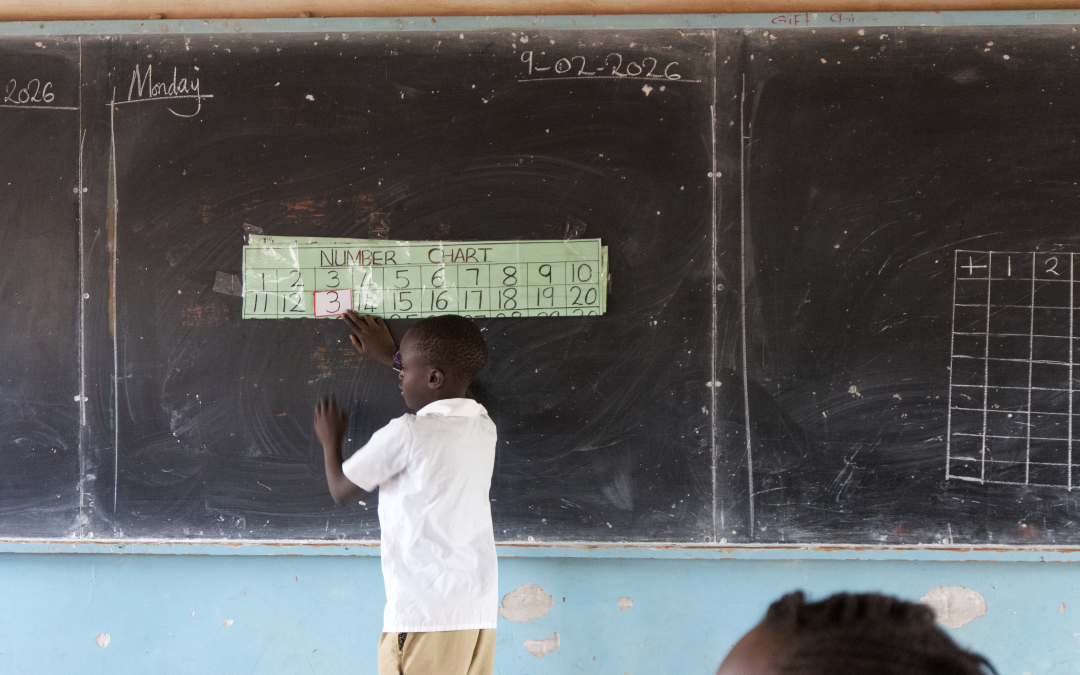 2026
Monday
9-02-2026
NUMBER CHART
1 2 3 4 5 6 7 8 9 10
11 12 3 14 15 16 17 18 19 20
+ 1 2